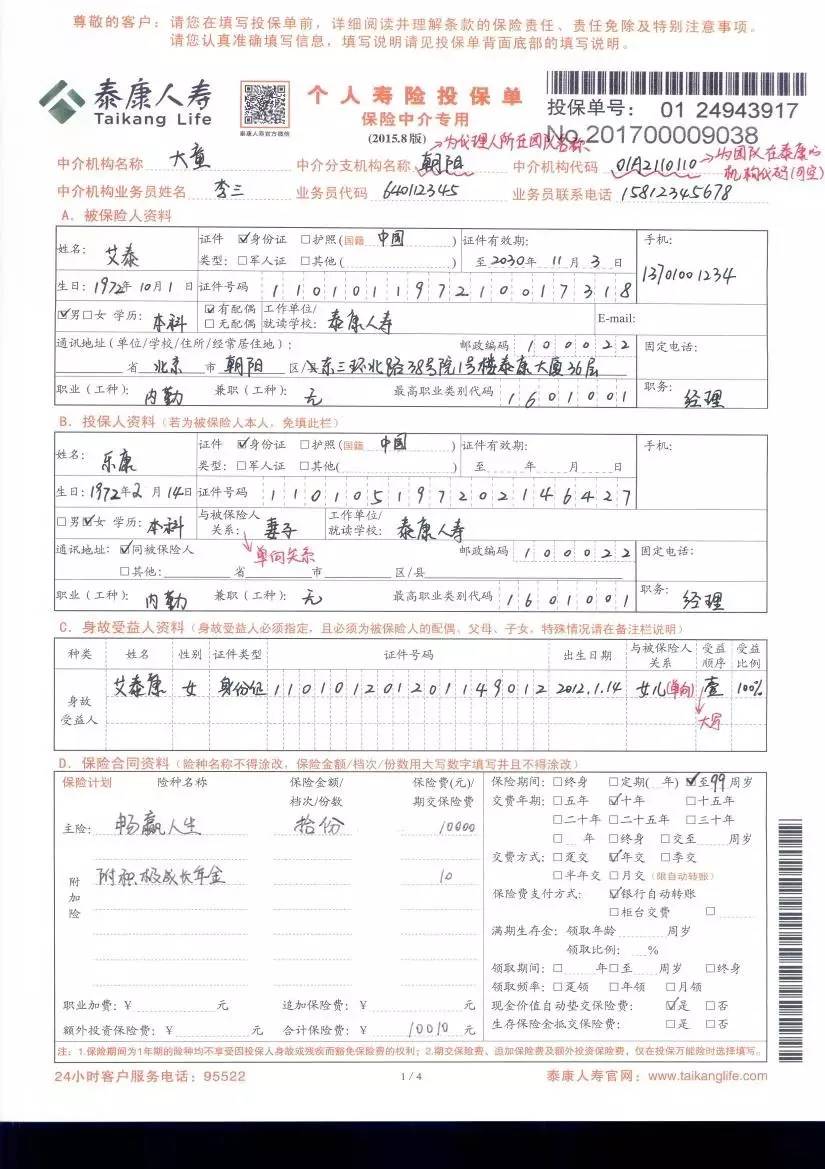 尊敬的客户：请您在填写投保单前，详细阅读并理解条款的保险责任、责任免除及特别注意事项。
请您认真准确填写信息，填写说明请见投保单背面底部的填写说明。
泰康人寿
Taikang Life
泰康人寿官方微信
个人寿险投保单
保险中介专用
(2015.8版)
投保单号： 01 24943917
No.201700009038
为代理人所在团队名称
中介机构名称 大童 中介分支机构名称 朝阳 中介机构代码 01A2110110
为团队在泰康的机构代码(可空)
中介机构业务员姓名 李三 业务员代码 640112345 业务员联系电话 15812345678
A. 被保险人资料
姓名：艾泰 证件类型：☑身份证 □护照(国籍 中国) □军人证 □其他( ) 证件有效期：至2030年 11月 3日 手机：13701001234
生日：1972年10月1日 证件号码 110101197210017318
☑男□女 学历：本科 ☑有配偶 □无配偶 工作单位/就读学校：泰康人寿 E-mail:
通讯地址(单位/学校/住所/经常居住地)： 邮政编码 100022 固定电话：
省 北京 市 朝阳 区/县东三环北路38号院1号楼泰康大厦36层
职业(工种)：内勤 兼职(工种)：无 最高职业类别代码 1601001 职务：经理
B. 投保人资料(若为被保险人本人，免填此栏)
姓名：乐康 证件类型：☑身份证 □护照(国籍 中国) □军人证 □其他( ) 证件有效期：至 年 月 日 手机：
生日：1972年2月14日 证件号码 110105197202146427
□男☑女 学历：本科 与被保险人关系：妻子 工作单位/就读学校：泰康人寿
单向关系
通讯地址：☑同被保险人 邮政编码 100022 固定电话：
□其他： 省 市 区/县
职业(工种)：内勤 兼职(工种)：无 最高职业类别代码 1601001 职务：经理
C. 身故受益人资料(身故受益人必须指定，且必须为被保险人的配偶、父母、子女，特殊情况请在备注栏说明)
种类 姓名 性别 证件类型 证件号码 出生日期 与被保险人关系 受益顺序 受益比例
身故受益人 艾泰康 女 身份证 110101201201149012 2012.1.14 女儿(单向) 壹 100%
大写
D. 保险合同资料(险种名称不得涂改，保险金额/档次/份数用大写数字填写并且不得涂改)
保险计划 险种名称 保险金额/档次/份数 保险费(元)/期交保险费
主险：畅赢人生 拾份 10000
附加险 附积极成长年金 10
职业加费：¥ 元 追加保险费：¥ 元
额外投资保险费：¥ 元 合计保险费：¥ 10010 元
保险期间：□终身 □定期( 年) ☑至99周岁
交费年期：□五年 ☑十年 □十五年
□二十年 □二十五年 □三十年
□ 年 □终身 □交至 周岁
交费方式：□趸交 ☑年交 □季交
□半年交 □月交(限自动转账)
保险费支付方式：☑银行自动转账
□柜台交费 □
满期生存金：领取年龄 周岁
领取比例： %
领取期间：□ 年□至 周岁 □终身
领取频率：□趸领 □年领 □月领
现金价值自动垫交保险费：☑是 □否
生存保险金抵交保险费：□是 □否
注：1.保险期间为1年期的险种均不享受因投保人身故或残疾而豁免保险费的权利；2.期交保险费、追加保险费及额外投资保险费，仅在投保万能险时选择填写。
24小时客户服务电话：95522
1 / 4
泰康人寿官网：www.taikanglife.com